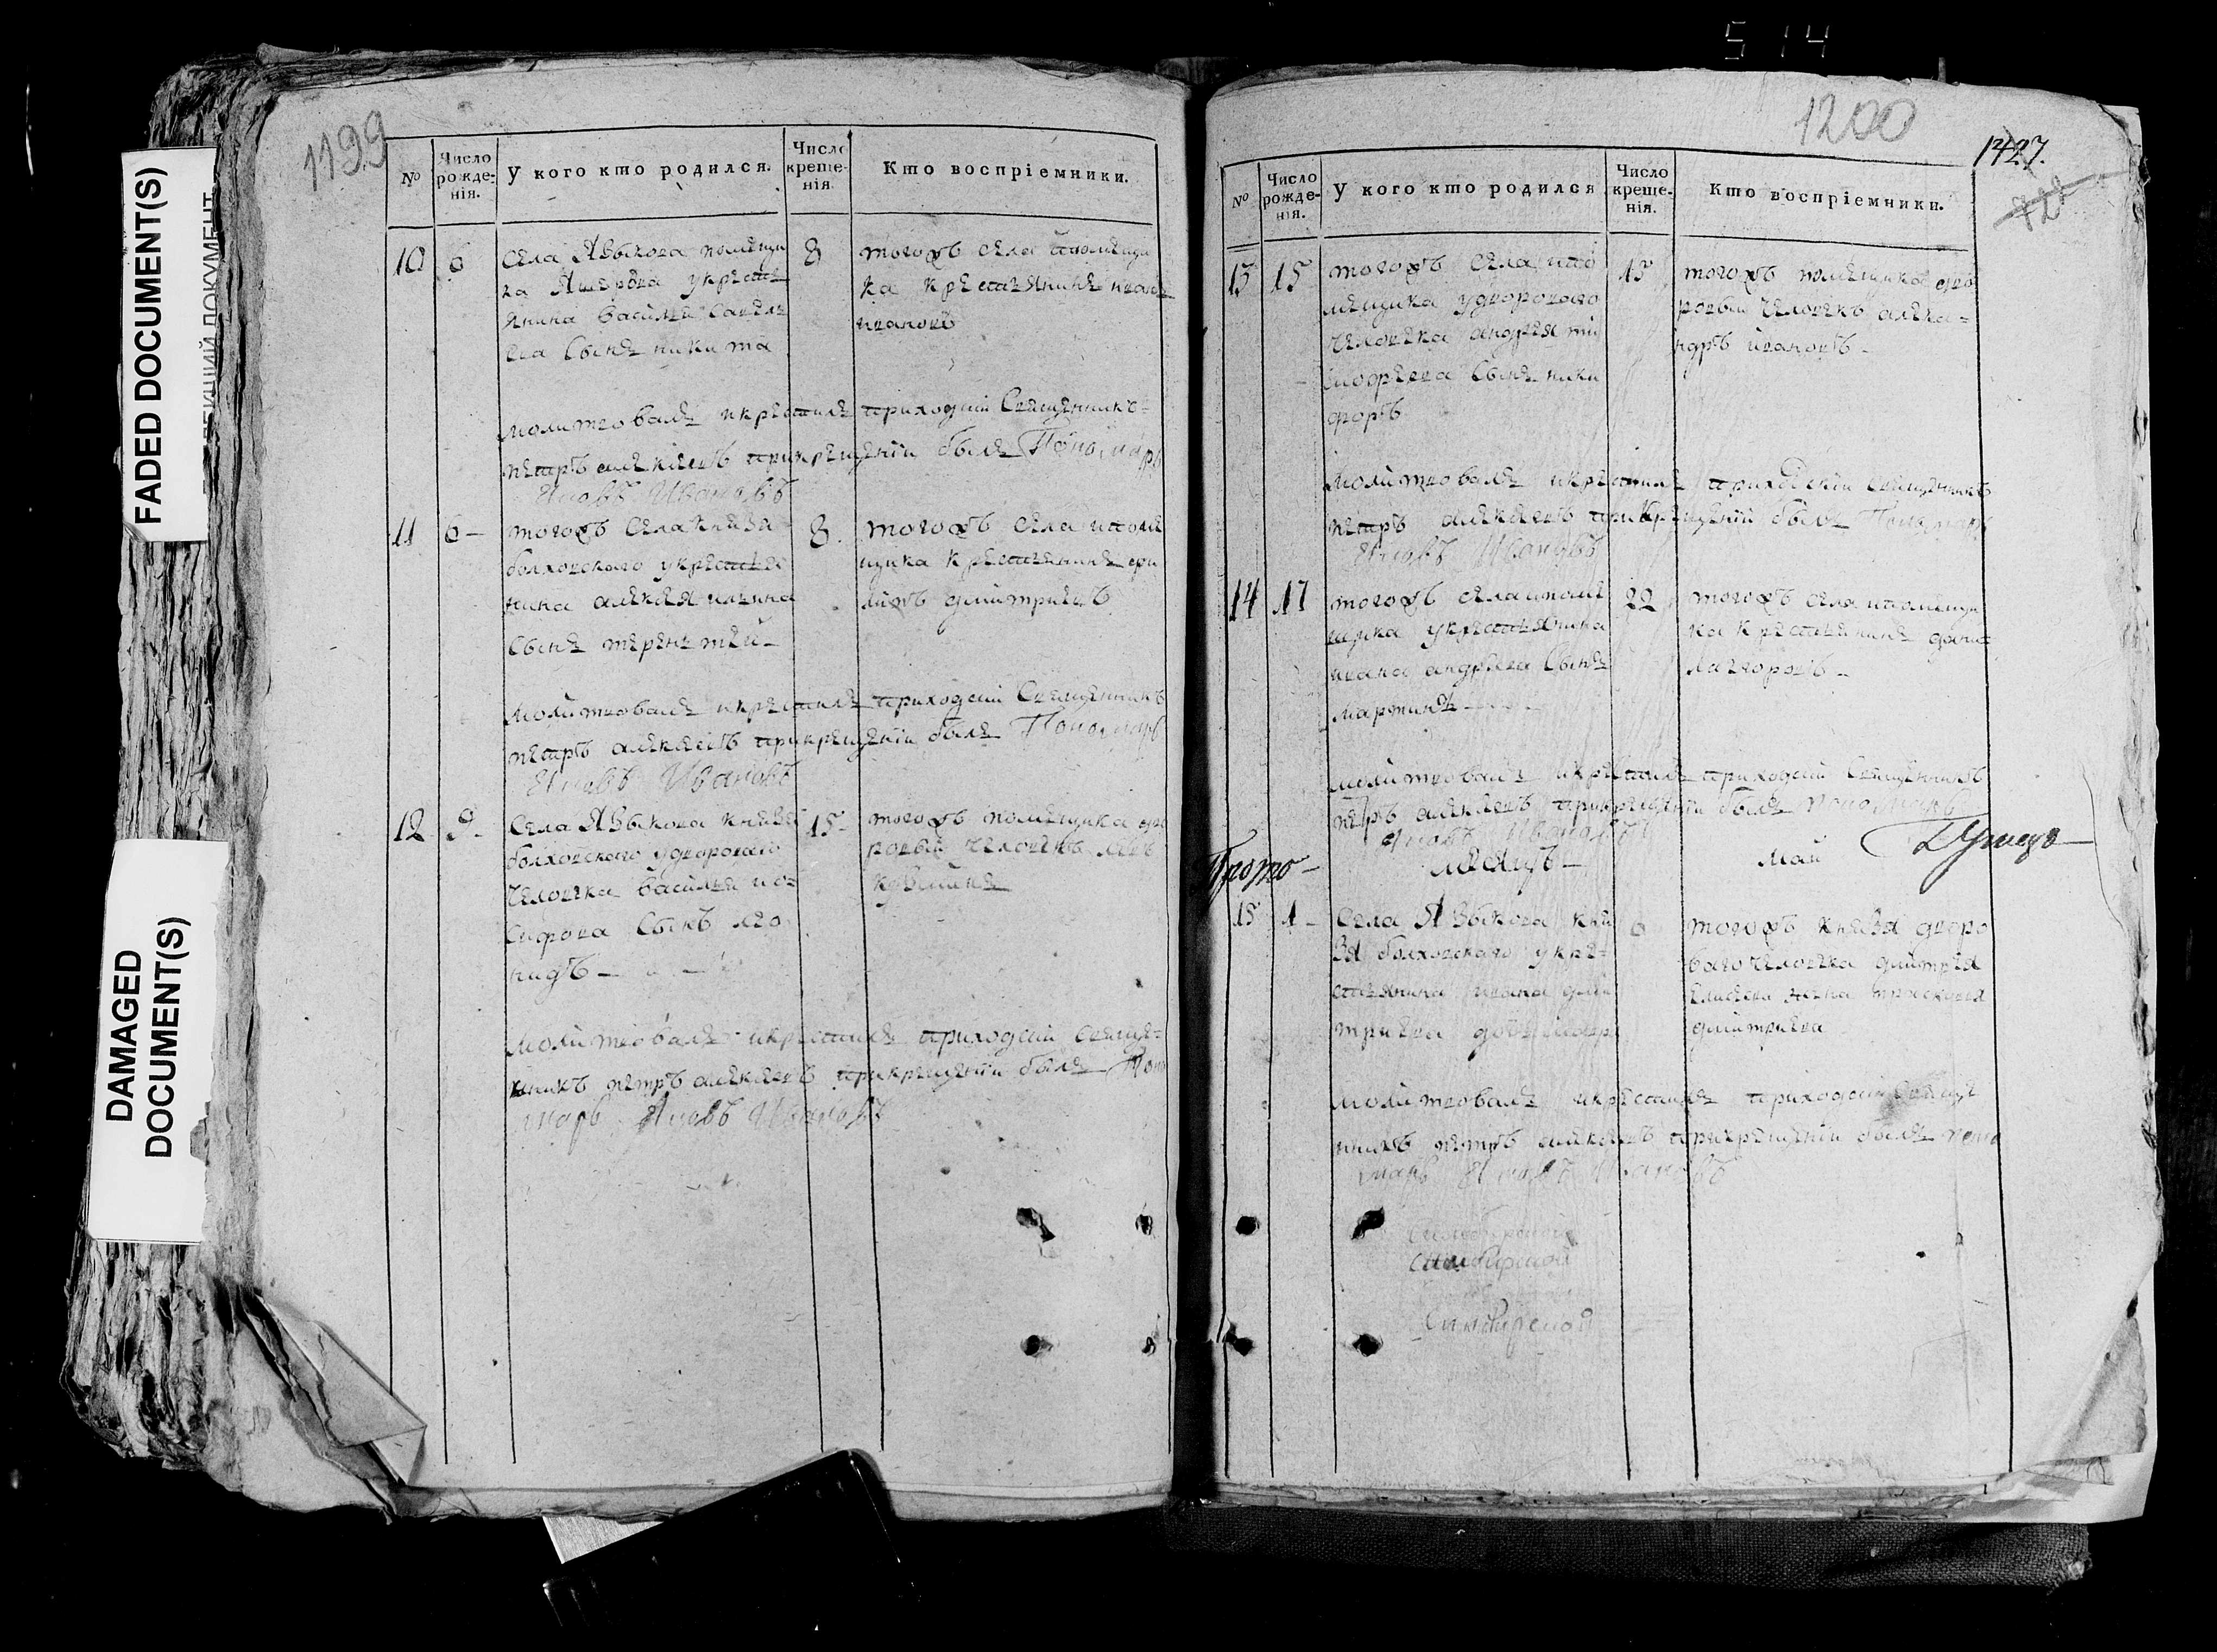 514
FADED DOCUMENT(S)
DAMAGED
DOCUMENT(S)
1199
№
Число рожде-нія.
У кого кто родился.
Число креще-нія
Кто воспріемники.
10
6
8
Села Языкова помѣщи
ка укрестья
янина василья савель
ева сынъ никита
тогожъ села ипомѣщи
ка крестьянинъ иванъ
ивановъ
молитвовалъ икрестилъ приходскій священникъ
петръ алексѣевъ прикрещеніи былъ Пономарь
Яковъ Ивановъ
11
6
8
тогожъ села князя
болховскаго укрестья
нина алексѣя ильина
сынъ терентей
тогожъ села ипомѣ
щика крестьянинъ фи
липъ дмитріевъ
молитвовалъ икрестилъ приходскій священникъ
петръ алексѣевъ прикрещеніи былъ Пономарь
Яковъ Ивановъ
12
9
15
Села Языкова князя
болховскаго удвороваго
человѣка василья ио=
сифова сынъ лео
нидъ
тогожъ помѣщика дво
ровый человѣкъ левъ
кузминъ
молитвовалъ икрестилъ приходскій свяще=
нникъ петръ алексѣевъ прикрещеніи былъ Поно
марь Яковъ Ивановъ
1200
1427.
№
Число рожде-нія.
У кого кто родился
Число креще-нія.
Кто воспріемники.
13
15
15
тогожъ села ипо
мѣщика удвороваго
человѣка андрея ти
мофѣева сынъ ники
форъ
тогожъ помѣщика дво
ровый человѣкъ алекса=
ндръ ивановъ
молитвовалъ икрестилъ приходскій священникъ
петръ алексѣевъ прикрещеніи былъ Пономарь
Яковъ Ивановъ
14
17
22
тогожъ села ипомѣ
щика укрестьянина
ивана андрѣева сынъ
мартинъ
тогожъ села ипомѣщи
ка крестьянинъ дани
ла егоровъ
молитвовалъ икрестилъ приходскій священникъ
петръ алексѣевъ прикрещеніи былъ пономарь
Яковъ Ивановъ
Прото
мѣсяцъ
Май
15
1
6
Села Языкова кня
зя болховскаго укре=
стьянина ивана дми
тріева дочь
тогожъ князя дворо
ваго человѣка дмитрія
елисѣева жена праскавья
дмитріева
молитвовалъ икрестилъ приходскій свяще
нникъ петръ алексѣевъ прикрещеніи былъ поно
марь Яковъ Ивановъ
Симбирской
Симбирской